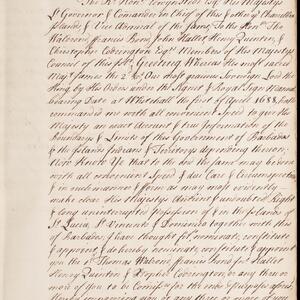 The Rt Honble Edwyn Stede Esqr his Majestys
Lt Governor & Comander in Cheif of this & other ye Charribbee
Islands, & Vice Admiral of the same, To the Honble Thos
Walrond Francis Bond, John Hallet Henry Quintin, &
Christopher Codrington Esqrs Members of his Majestys
Council of this Isld Greeting Whereas His most sacred
Majty James the 2d Our most gracious Sovereign Lord the
King by His Orders under the Signet & Royal Sign Manual
bearing Date at Whitehall the first of April 1688 hath
commanded me with all convenient Speed to give His
Majesty an exact Account & true Information of the
Boundarys & Limits of this Government of Barbados
& the Islands Indians & Territorys depending thereon;
Now Know Ye that to the end the same may be done
with all convenient Speed & due Care & Circumspection
& in such manner & form as may most evidently
make clear His Majestys Antient & undoubted Right
& long uninterrupted possession of & in the Islands of
St Lucia St Vincents & Dominico together with this
of Barbados, I have thought fit, nominate, constitute
& appoint, & do hereby nominate, constitute & appoint
you the sd Thomas Walrond Francis Bond John Hallet
Henry Quintin & Christophr Codrington or any three or
more of you to be Comissrs for the ends & purposes aforesd,